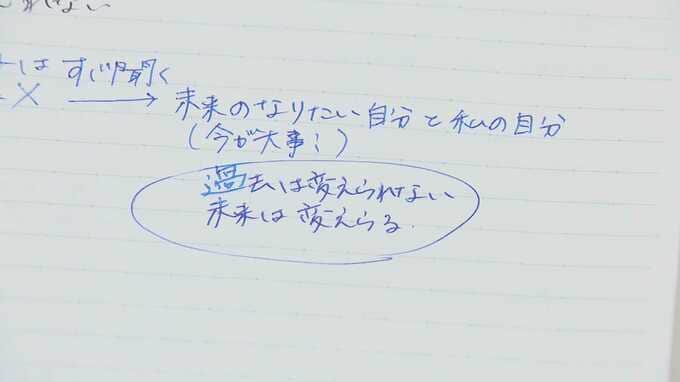 れない
は すぐ聞く
× → 未来のなりたい自分と私の自分
(今が大事!)
過去は変えられない
未来は変えらる